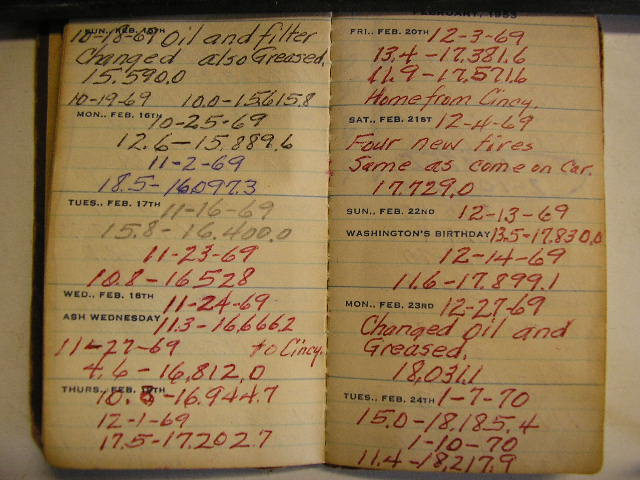 SUN., FEB. 15TH
10-18-69 Oil and filter
Changed also Greased.
15,590.0
10-19-69 10.0-15,615.8
MON., FEB. 16TH
10-25-69
12.6-15,889.6
11-2-69
18.5-16,097.3
TUES., FEB. 17TH
11-16-69
15.8-16,400.0
11-23-69
10.8-16,528
WED., FEB. 18TH
11-24-69
ASH WEDNESDAY
11.3-16,666.2
11-27-69 to Cincy.
4.6-16,812.0
THURS., FEB. 19TH
10.8-16,944.7
12-1-69
17.5-17,202.7
FEBRUARY, 1953
FRI., FEB. 20TH 12-3-69
13.4-17,381.6
11.9-17,571.6
Home from Cincy.
SAT., FEB. 21ST 12-4-69
Four new tires
Same as come on car.
17,729.0
SUN., FEB. 22ND 12-13-69
WASHINGTON'S BIRTHDAY 13.5-17,830.0
12-14-69
11.6-17,899.1
MON., FEB. 23RD 12-27-69
Changed oil and
Greased.
18,031.1
TUES., FEB. 24TH 1-7-70
15.0-18,185.4
1-10-70
11.4-18,217.9